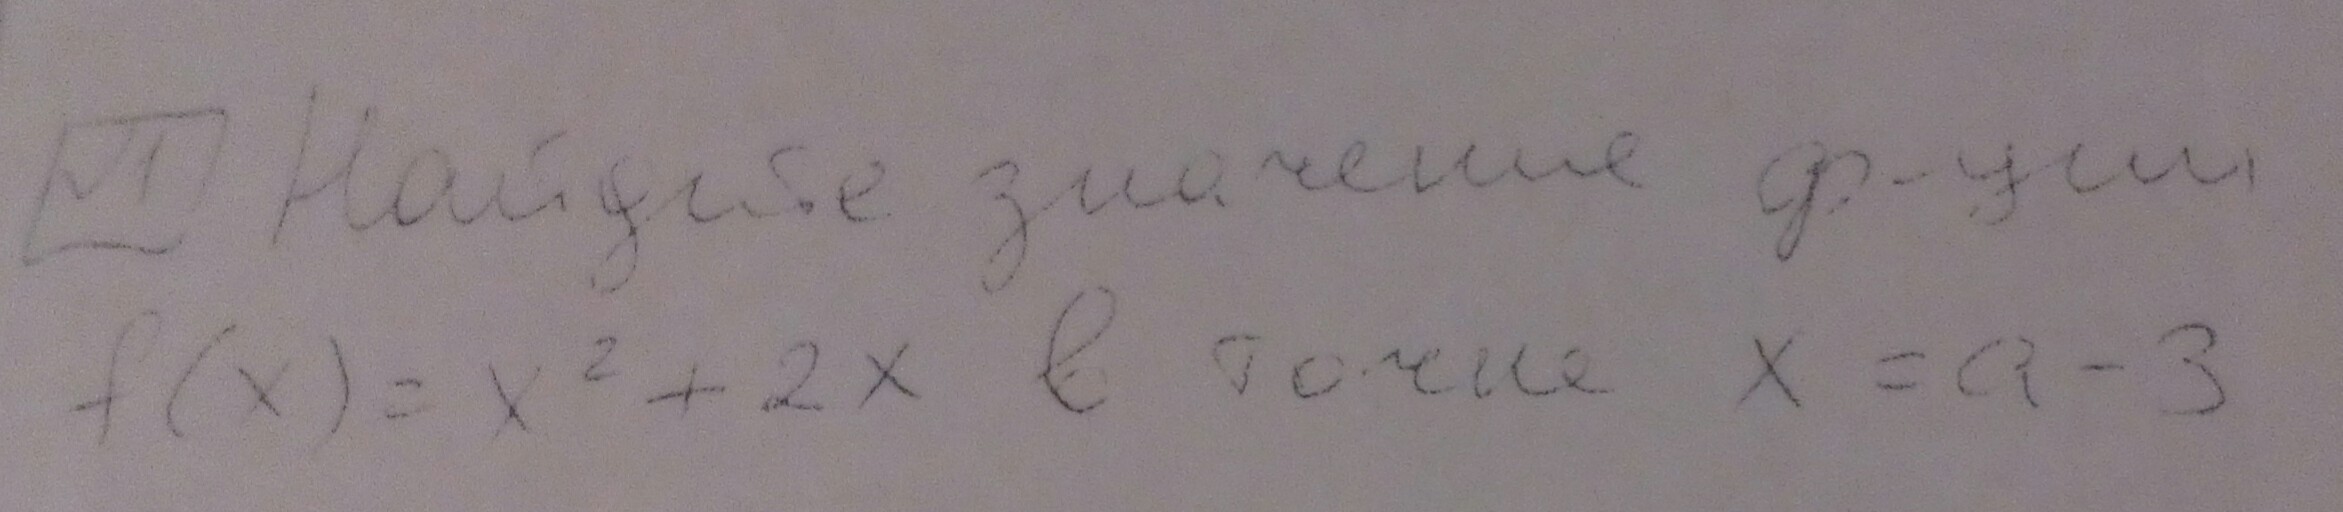 VI Найдите значение ф-ции
f(x) = x² + 2x в точке x = a - 3